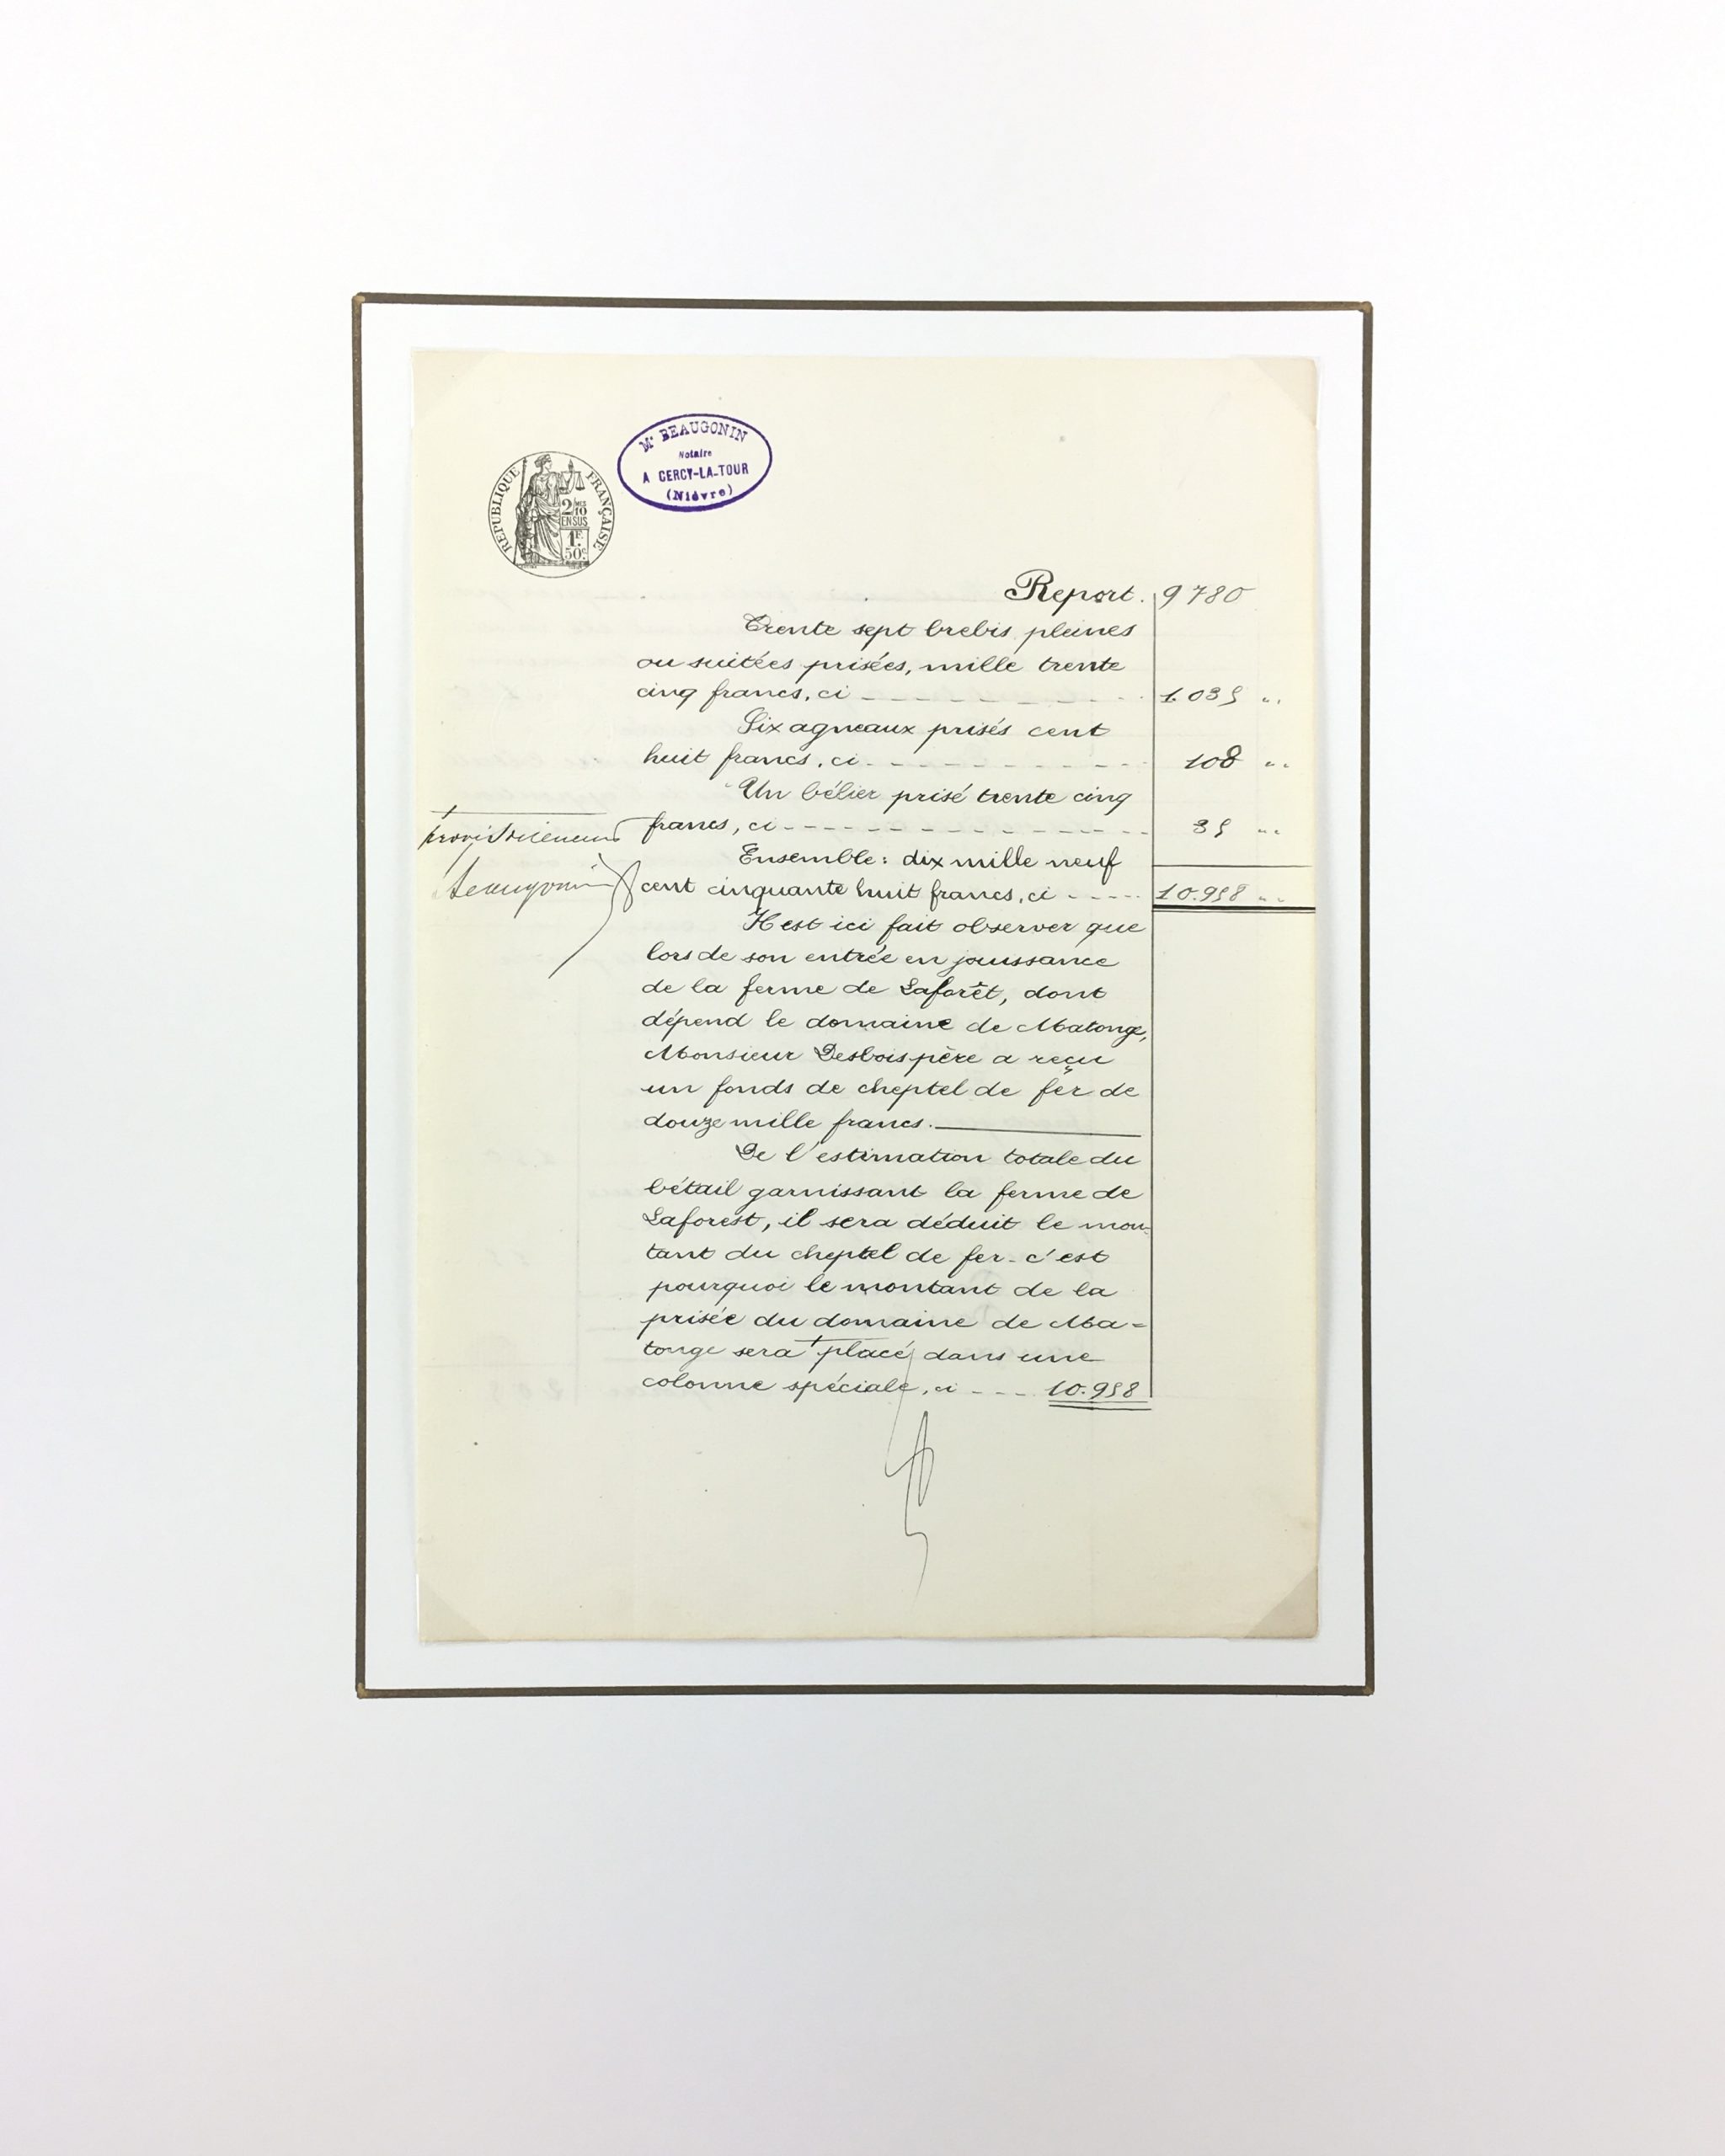 Mᵉ BEAUGONIN
Notaire
A CERCY-LA-TOUR
(Nièvre)
RÉPUBLIQUE FRANÇAISE
2/10 MES
EN SUS
1F.
50c
Report. 9780
Trente sept brebis pleines
ou suitées prisées, mille trente
cinq francs, ci 1.035 "
Six agneaux prisés cent
huit francs, ci 108 "
Un bélier prisé trente cinq
francs, ci 35 "
Ensemble: dix mille neuf
cent cinquante huit francs, ci 10.958 "
Il est ici fait observer que
lors de son entrée en jouissance
de la ferme de Laforêt, dont
dépend le domaine de Matonge,
Monsieur Desbois père a reçu
un fonds de cheptel de fer de
douze mille francs.
De l'estimation totale du
bétail garnissant la ferme de
Laforest, il sera déduit le mon-
tant du cheptel de fer - c'est
pourquoi le montant de la
prisée du domaine de Ma=
tonge sera + placé dans une
colonne spéciale, ci 10.958
+
provisoirement
Beaugonin